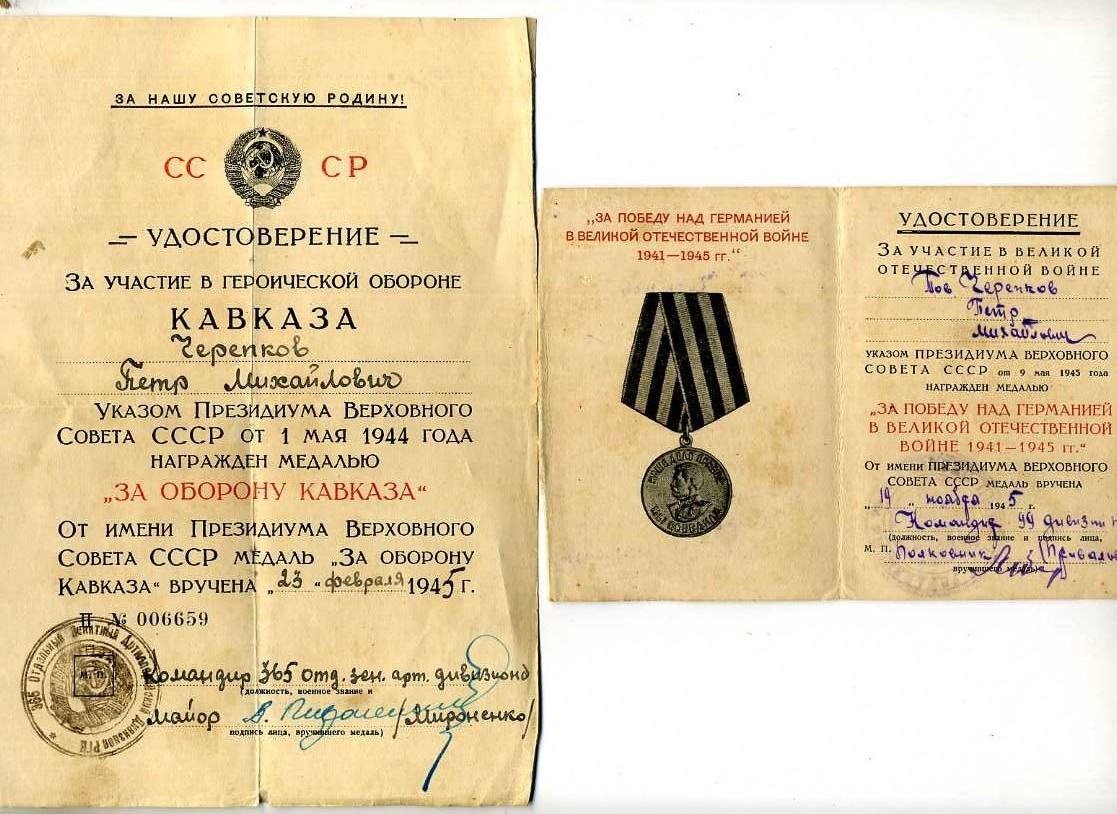 ЗА НАШУ СОВЕТСКУЮ РОДИНУ!
СС СР
УДОСТОВЕРЕНИЕ
ЗА УЧАСТИЕ В ГЕРОИЧЕСКОЙ ОБОРОНЕ
КАВКАЗА
Черепков
Петр Михайлович
УКАЗОМ ПРЕЗИДИУМА ВЕРХОВНОГО
СОВЕТА СССР ОТ 1 МАЯ 1944 ГОДА
НАГРАЖДЕН МЕДАЛЬЮ
„ЗА ОБОРОНУ КАВКАЗА“
ОТ ИМЕНИ ПРЕЗИДИУМА ВЕРХОВНОГО
СОВЕТА СССР МЕДАЛЬ „ЗА ОБОРОНУ
КАВКАЗА“ ВРУЧЕНА „23“ февраля 1945 г.
П № 006659
365 Отдельный Зенитный Артиллерийский Дивизион РГК
М. П.
Командир 365 отд. зен. арт. дивизиона
(должность, военное звание и
майор /Мироненко/
подпись лица, вручившего медаль)
„ЗА ПОБЕДУ НАД ГЕРМАНИЕЙ
В ВЕЛИКОЙ ОТЕЧЕСТВЕННОЙ ВОЙНЕ
1941—1945 гг.“
НАШЕ ДЕЛО ПРАВОЕ
МЫ ПОБЕДИЛИ
УДОСТОВЕРЕНИЕ
ЗА УЧАСТИЕ В ВЕЛИКОЙ
ОТЕЧЕСТВЕННОЙ ВОЙНЕ
Тов Черепков
Петр
Михайлович
УКАЗОМ ПРЕЗИДИУМА ВЕРХОВНОГО
СОВЕТА СССР от 9 мая 1945 года
НАГРАЖДЕН МЕДАЛЬЮ
„ЗА ПОБЕДУ НАД ГЕРМАНИЕЙ
В ВЕЛИКОЙ ОТЕЧЕСТВЕННОЙ
ВОЙНЕ 1941—1945 гг.“
ОТ ИМЕНИ ПРЕЗИДИУМА ВЕРХОВНОГО
СОВЕТА СССР МЕДАЛЬ ВРУЧЕНА
„19“ ноября 1945 г.
Командир 99 дивизии
(должность, военное звание и подпись лица,
М. П. Полковник
вручившего медаль)